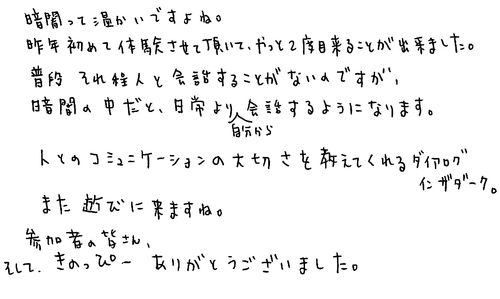 暗闇って温かいですよね。
昨年初めて体験させて頂いて、やっと2度目来ることが出来ました。
普段それ程人と会話することがないのですが、
暗闇の中だと、日常より自分から会話するようになります。
人とのコミュニケーションの大切さを教えてくれるダイアログ
インザダーク。
また遊びに来ますね。
参加者の皆さん、
そして、きのっぴー ありがとうございました。